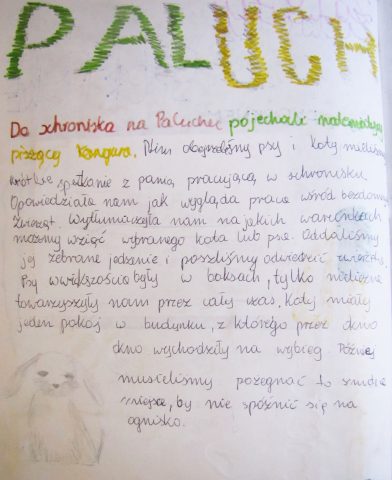 PALUCH
Do schroniska na Paluchu pojechali matematycy
piszący Kangura. Nim obejrzeliśmy psy i koty mieliśmy
krótkie spotkanie z panią pracującą w schronisku.
Opowiedziała nam jak wygląda praca wśród bezdomnych
zwierząt. Wytłumaczyła nam na jakich warunkach
możemy wziąć wybranego kota lub psa. Oddaliśmy
jej zebrane jedzenie i poszliśmy odwiedzić zwierzęta.
Psy w większości były w boksach, tylko nieliczne
towarzyszyły nam przez cały czas. Koty miały
jeden pokój w budynku, z którego przez okno
okno wychodziły na wybieg. Później
musieliśmy pożegnać to smutne
miejsce, by nie spóźnić się na
ognisko.